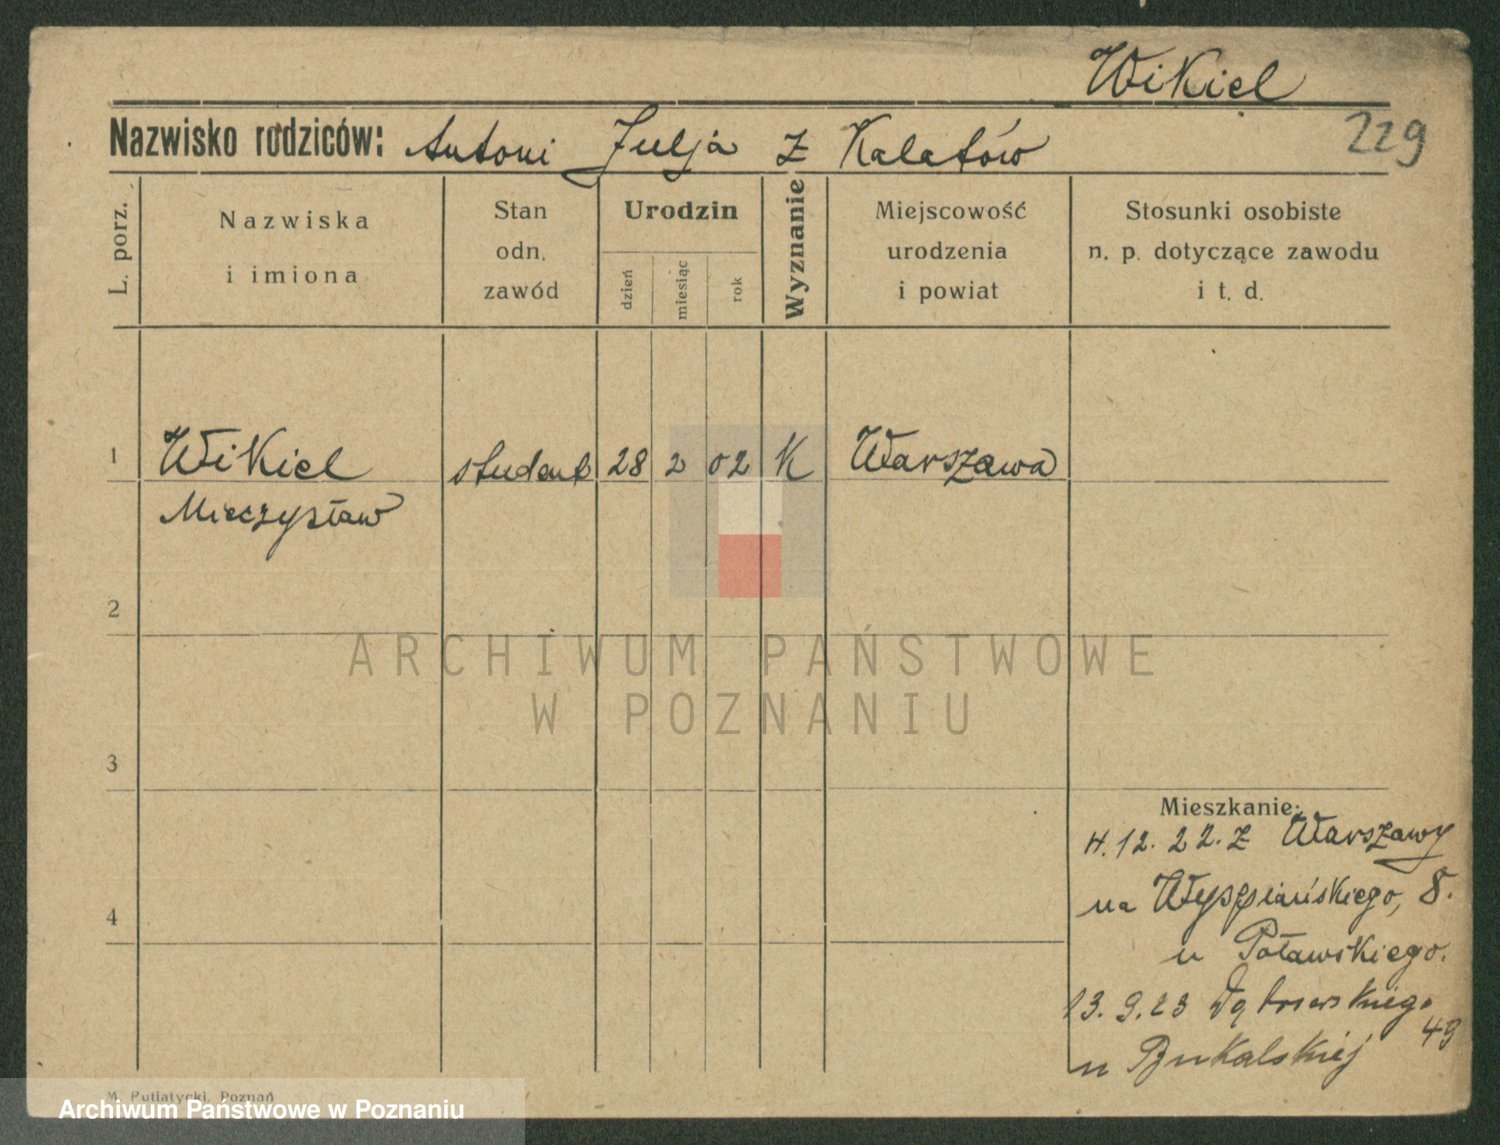 Wikiel
Nazwisko rodziców: Antoni Julja z Kalatów
229
L. porz.
Nazwiska
i imiona
Stan
odn.
zawód
Urodzin
dzień
miesiąc
rok
Wyznanie
Miejscowość
urodzenia
i powiat
Stosunki osobiste
n. p. dotyczące zawodu
i t. d.
1 Wikiel student 28 2 02 K Warszawa
Mieczysław
2
ARCHIWUM PAŃSTWOWE
W POZNANIU
3
Mieszkanie:
12. 22. z Warszawy
4
na Wyspiańskiego, 8.
u Poławskiego.
13. 9. 23 Dąbrowskiego
49
u
M. Putiatycki, Poznań
Archiwum Państwowe w Poznaniu